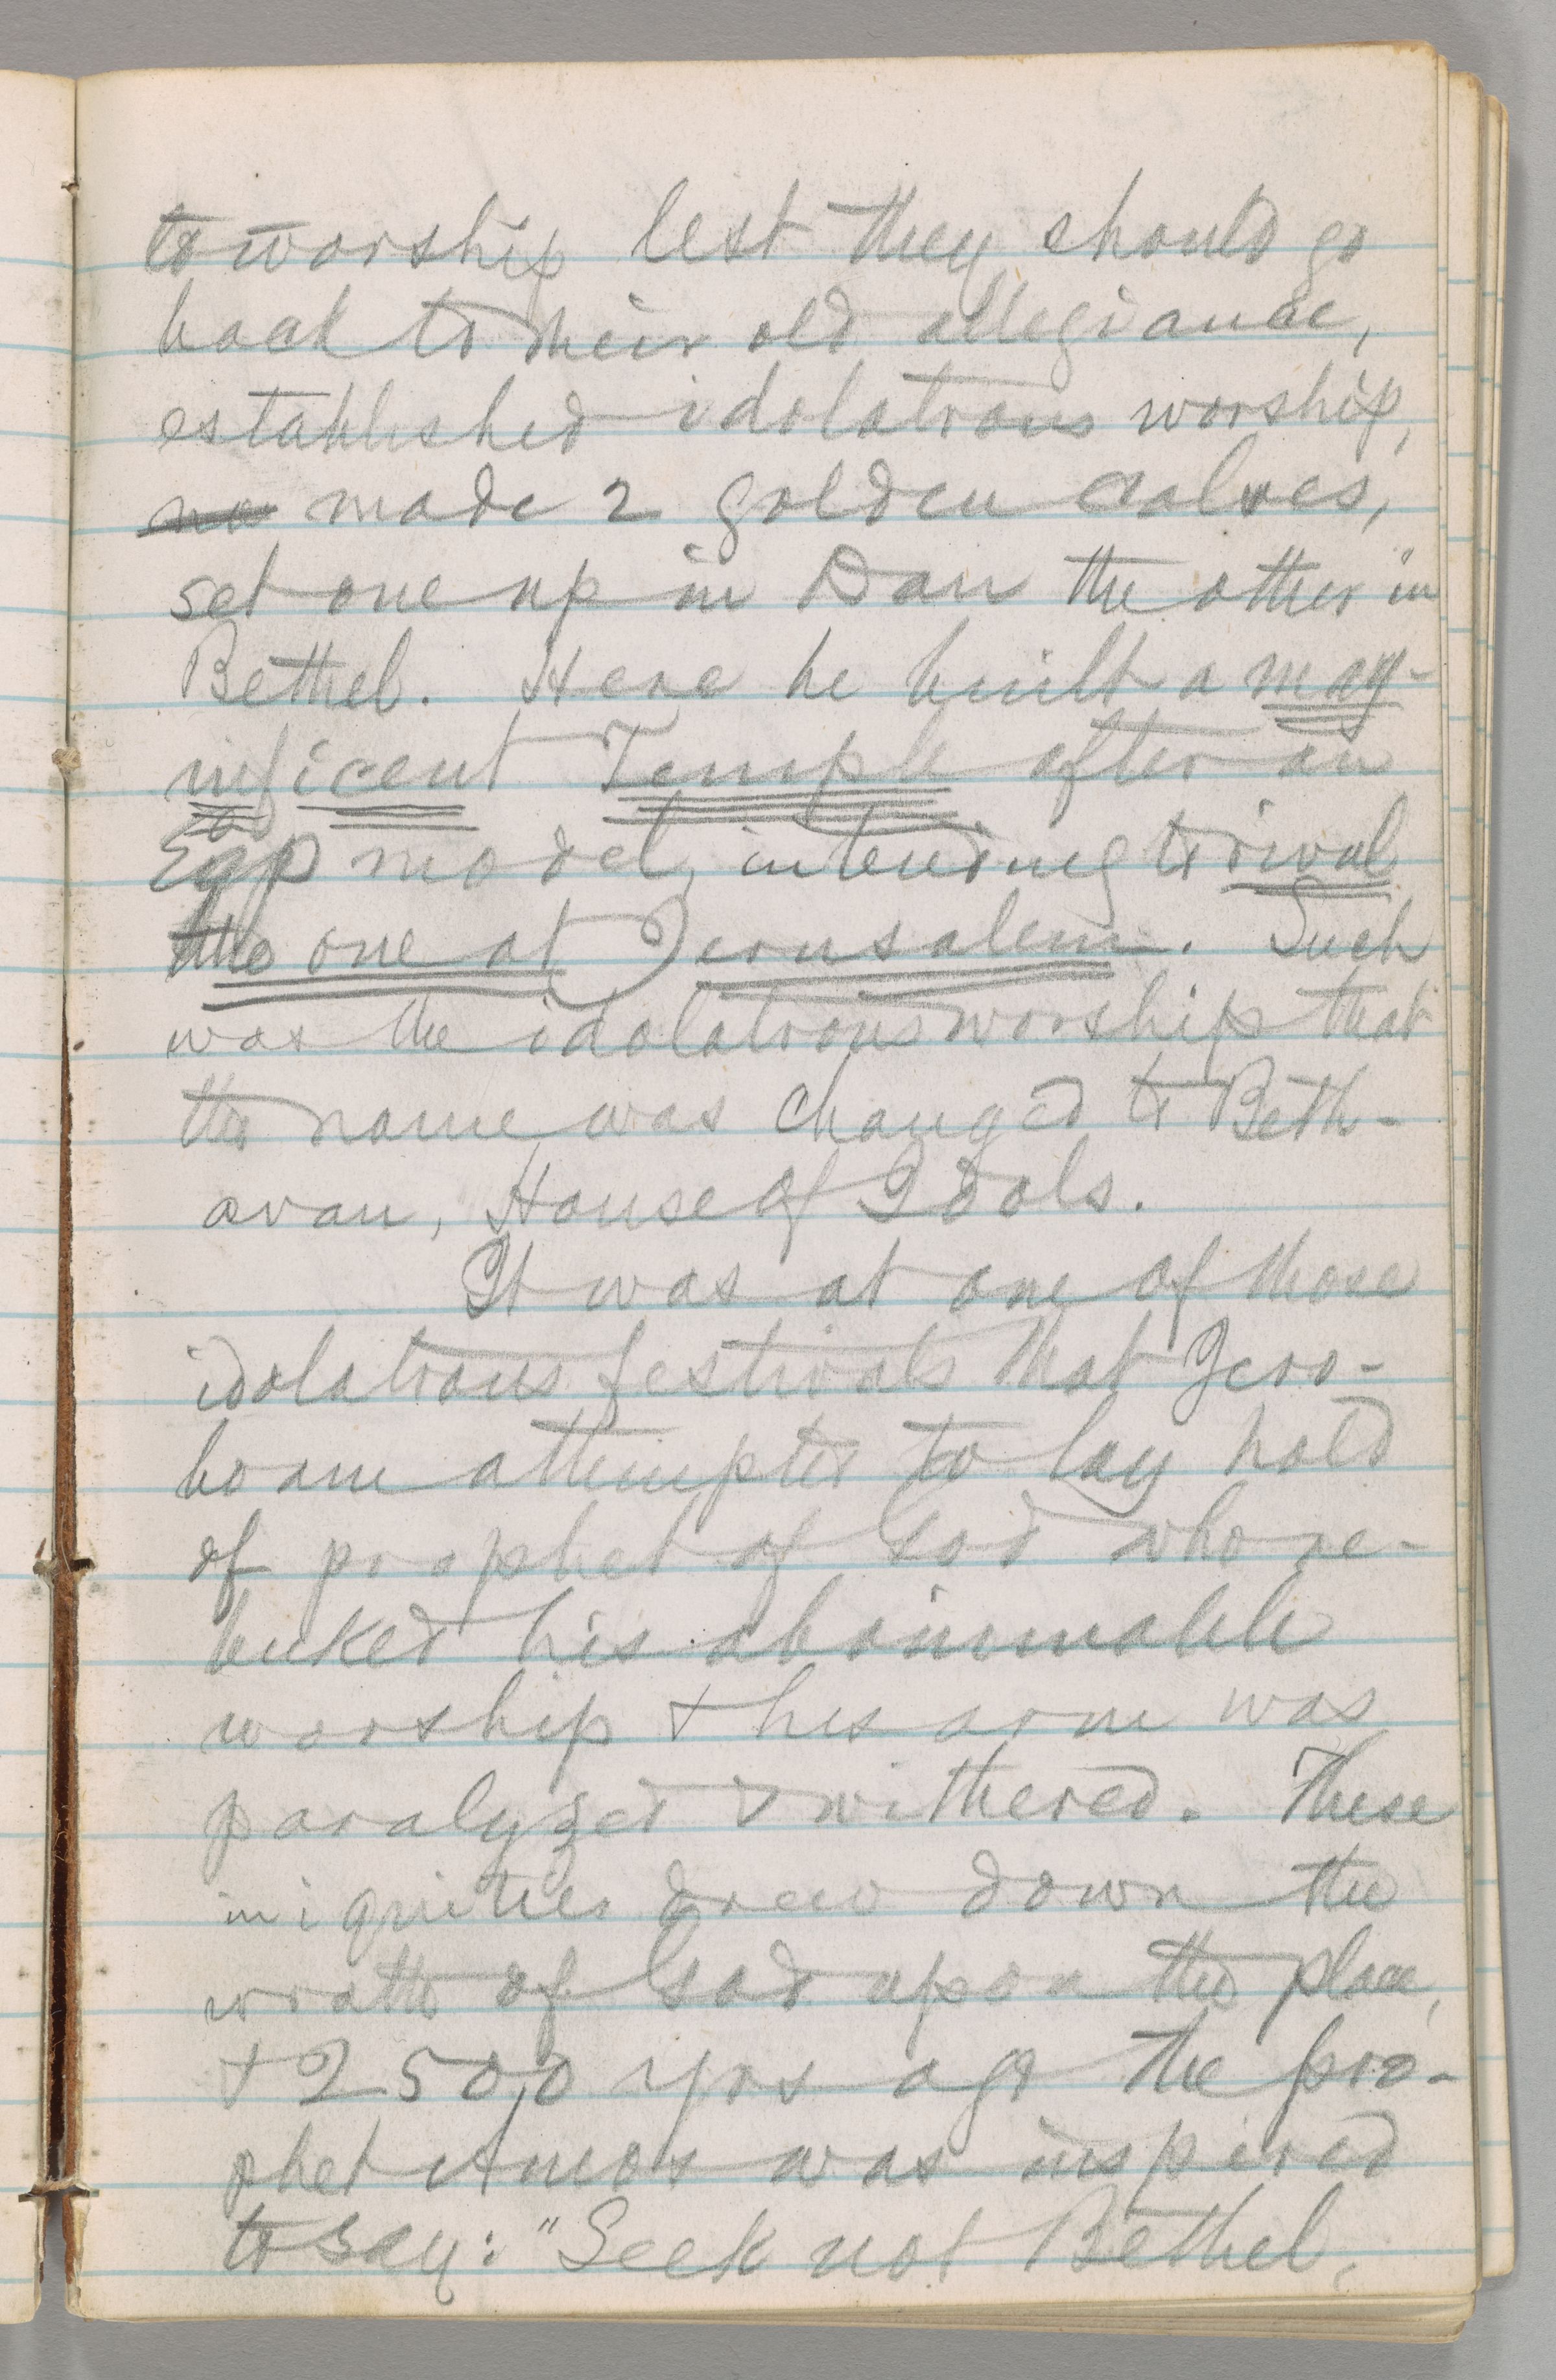 to worship lest they should go
back to their old allegiance,
established idolatrous worship,
made 2 golden calves,
set one up in Dan the other in
Bethel. Here he built a mag-
nificent Temple after an
Egp model, intending to rival
the one at Jerusalem. Such
was the idolatrous worship that
the name was changed to Beth-
avan, House of Idols.
It was at one of those
idolatrous festivals that Jero-
boam attempted to lay hold
of prophet of God who re-
buked his abominable
worship + his arm was
paralyzed & withered. These
iniquities drew down the
wrath of God upon the place,
+ 2500 yrs ago the pro-
phet Amos was inspired
to say: "Seek not Bethel,